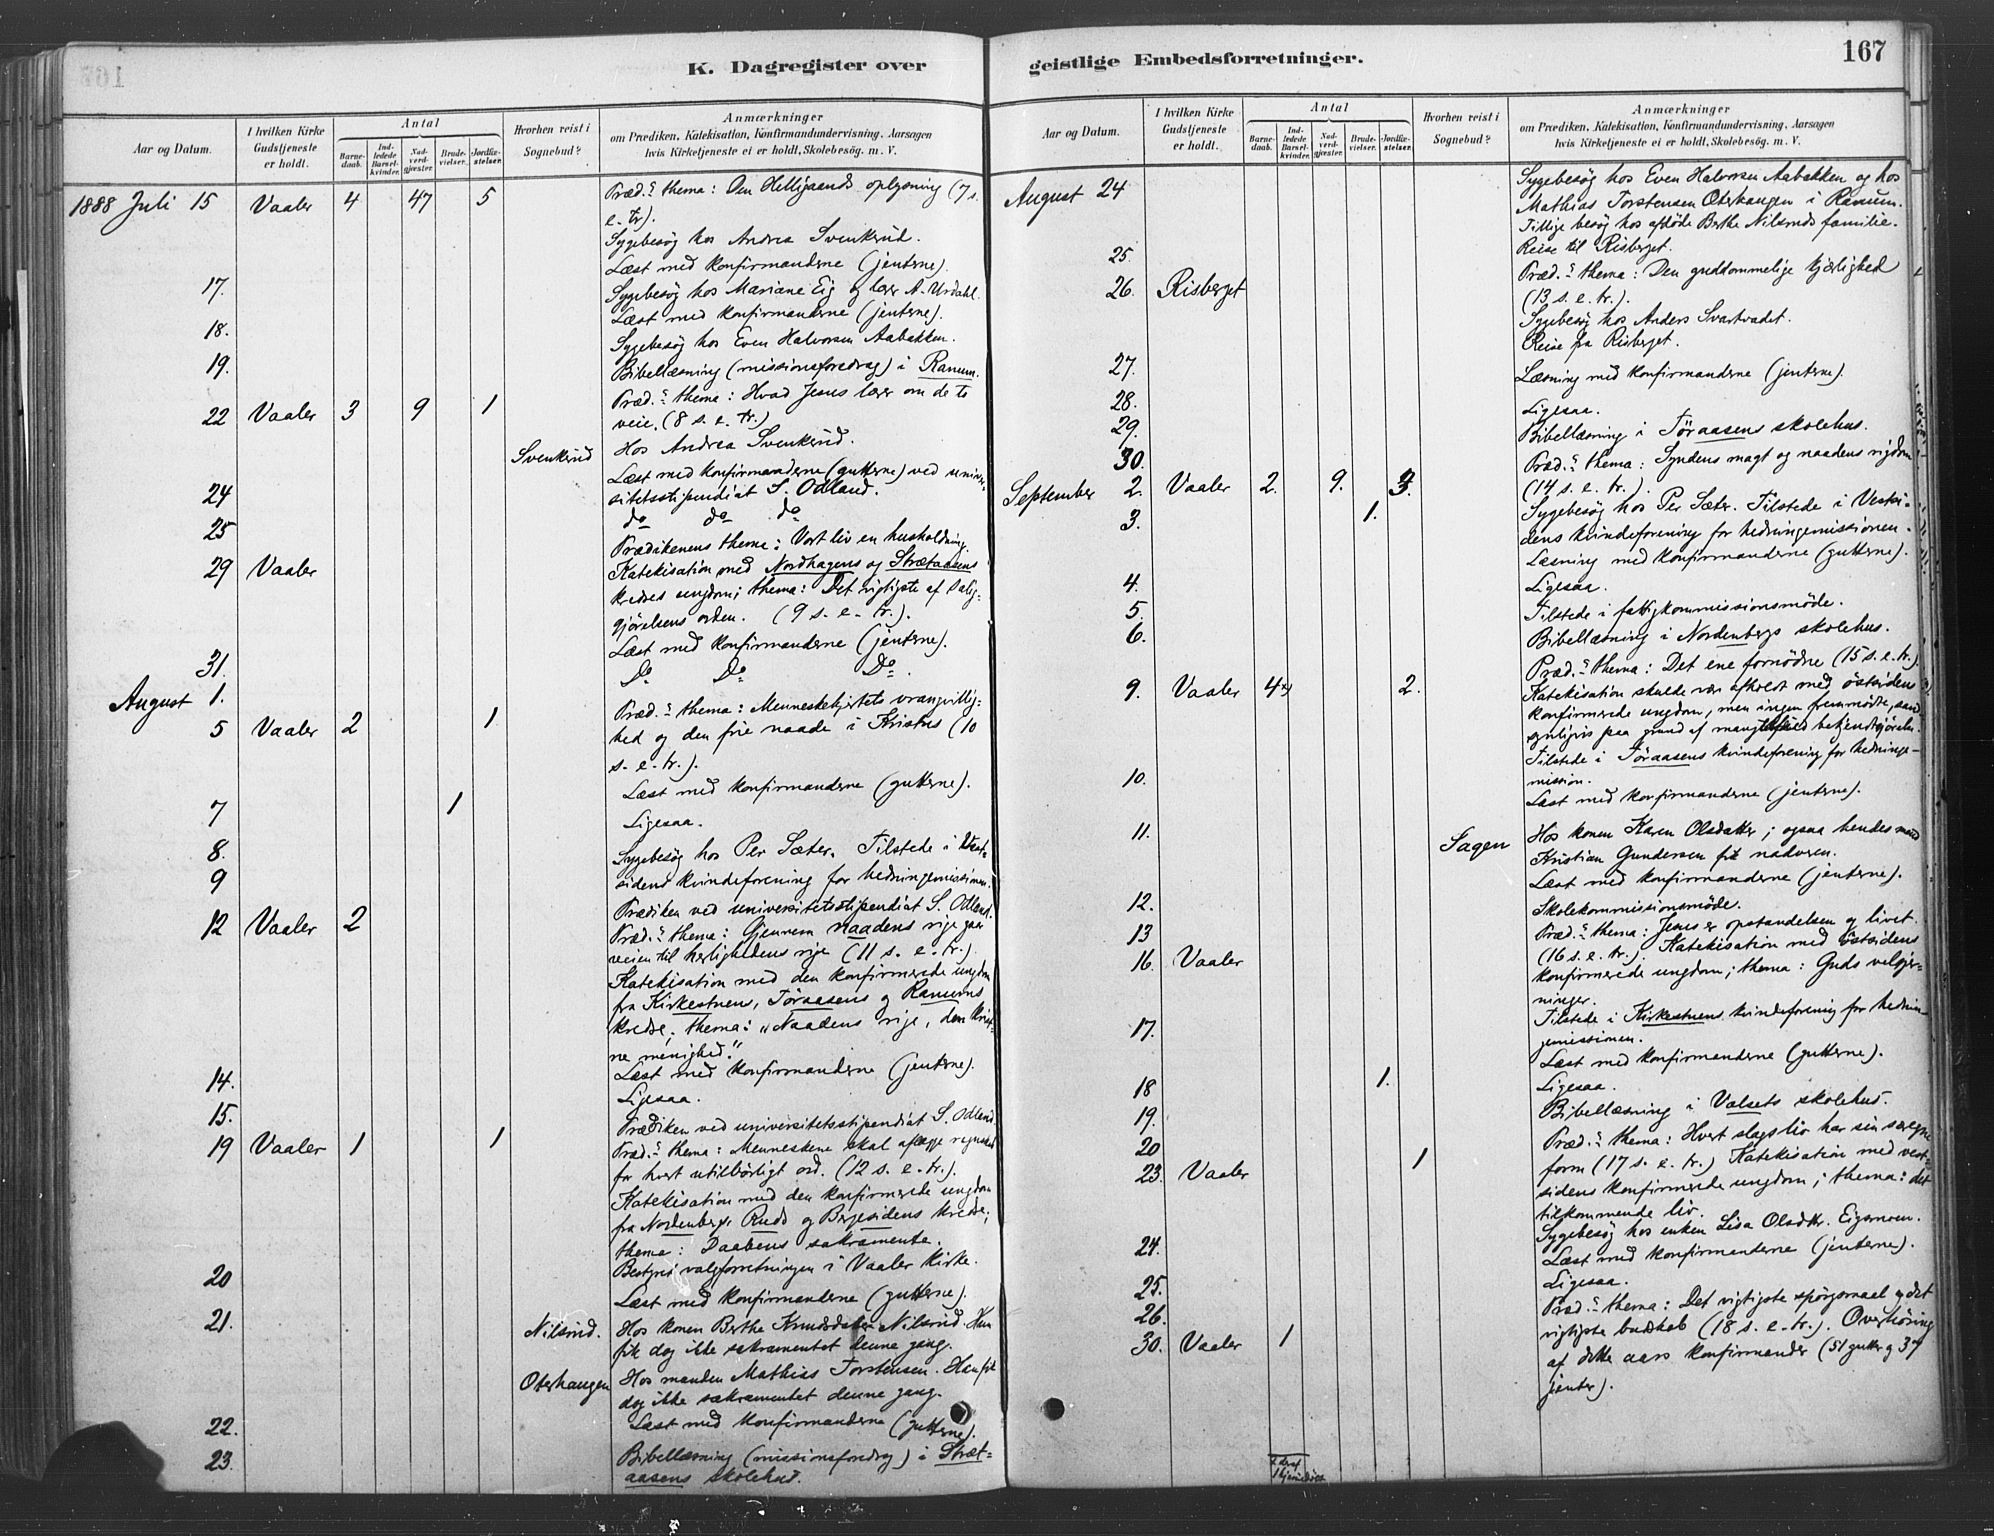 167
K. Dagregister over
Aar og Datum.
I hvilken Kirke Gudstjeneste er holdt.
Antal
Barnedaab.
Indledede Barselkvinder.
Nadverdgjæster.
Brudevielser.
Jordfæstelser.
Hvorhen reist i Sognebud?
Anmærkninger
om Prædiken, Katekisation, Konfirmandundervisning, Aarsagen
hvis Kirketjeneste ei er holdt, Skolebesøg. m. V.
1888 Juli 15 Vaaler 4 47 5 Præd.s thema: Den Helligaands oplysning (7 s.
e. tr).
Sygebesøg hos Andrea Svenkerud.
Læst med konfirmanderne (jenterne).
17. Sygebesøg hos Mariane Eig og lærer A. Urdahl.
Læst med konfirmanderne (jenterne).
18. Sygebesøg hos Even Halvorsen Aabakken.
19. Bibellæsning (missionsforedrag) i Ranum.
22 Vaaler 3 9 1 Præd.s thema: Hvad Jesus lærer om de to
veie. (8 s. e. tr.)
Svenkerud Hos Andrea Svenkerud.
24 Læst med konfirmanderne (gutterne) ved univer-
sitetsstipendiat S. Odland.
25 do do do
29 Vaaler Prædikenens thema: Vort liv en husholdning.
Katekisation med Nordhagens og Strætaasens
kredses ungdom; thema: Det vigtigste af Salig-
gjørelsens orden. (9 s. e. tr.).
31. Læst med konfirmanderne (jenterne).
August 1. Do Do Do.
5 Vaaler 2 1 Præd.s thema: Menneskehjertets vrangvillig-
hed og den frie naade i Kristus (10
s. e. tr.).
7 1 Læst med konfirmanderne (gutterne).
8. Ligesaa.
9 Sygebesøg hos Per Sæter. Tilstede i Vest-
sidens kvindeforening for hedningemissionen.
12 Vaaler 2 Prædiken ved universitetsstipendiat S. Odland.
Præd.s thema: Gjennem naadens rige gaar
veien til herlighedens rige (11 s. e. tr.).
Katekisation med den konfirmerede ungdom
fra Kirkestuens, Töraasens og Ranums
kredse; thema: "Naadens rige, den krist-
ne menighed."
14. Læst med konfirmanderne (jenterne).
15. Ligesaa.
19 Vaaler 1 1 Prædiken ved universitetsstipendiat S. Odland.
Præd.s thema: Menneskene skal aflægge regnskab
for hvert utilbørligt ord. (12 s. e. tr.).
Katekisation med den konfirmerede ungdom
fra Nordenbergs Ruds og Bergesidens kredse;
thema: Daabens sakramente.
20 Bestyret valgforretningen i Vaaler kirke.
21. Læst med konfirmanderne (gutterne).
Nilsrud. Hos konen Berthe Knudsdatter Nilsrud. Hun
fik dog ikke sakramentet denne gang.
Oterhaugen Hos manden Mathias Torstensen. Han fik
dog ikke sakramentet denne gang.
22. Læst med konfirmanderne (gutterne).
23. Bibellæsning (missionsforedrag) i Stræt-
aasens skolehus.
geistlige Embedsforretninger.
167
Aar og Datum.
I hvilken Kirke Gudstjeneste er holdt.
Antal
Barnedaab.
Indledede Barselkvinder.
Nadverdgjæster.
Brudevielser.
Jordfæstelser.
Hvorhen reist i Sognebud?
Anmærkninger
om Prædiken, Katekisation, Konfirmandundervisning, Aarsagen
hvis Kirketjeneste ei er holdt, Skolebesøg. m. V.
August 24 Sygebesøg hos Even Halvorsen Aabakken og hos
Mathias Torstensen Oterhaugen i Ranum.
Tillige besøg hos afdøde Berthe Nilsruds familie.
25. Reise til Risberget.
26. Risberget Præd.s thema: Den guddommelige kjærlighed
(13 s. e. tr.).
Sygebesøg hos Anders Svartvadet.
27. Reise fra Risberget.
28. Læsning med konfirmanderne (jenterne).
29. Ligesaa.
30. Bibellæsning i Töraasens skolehus.
September 2. Vaaler 2. 9. 3. Præd.s thema: Syndens magt og naadens rigdom
(14 s. e. tr.).
3. 1. Sygebesøg hos Per Sæter. Tilstede i Vestsi-
dens kvindeforening for hedningemissionen.
4. Læsning med konfirmanderne (gutterne).
5. Ligesaa.
6. Tilstede i fattigkommissionsmøde.
Bibellæsning i Nordenbergs skolehus.
9. Vaaler 4 2. Præd.s thema: Det ene fornødne (15 s. e. tr.)
Katekisation skulde vær afholdt med østsidens
konfirmerede ungdom, men ingen fremmødte, sand-
synligvis paa grund af mangelfuld bekjendtgjørelse.
10. Tilstede i Töraasens kvindeforening for hedninge-
mission.
11. Læst med konfirmanderne (jenterne).
Sagen Hos konen Karen Olsdatter; ogsaa hendes mand
Kristian Gundersen fik nadveren.
12. Læst med konfirmanderne (jenterne).
13 Skolekommissionsmøde.
16. Vaaler Præd.s thema: Jesus er opstandelsen og livet.
(16 s. e. tr.). Katekisation med østsidens
konfirmerede ungdom; thema: Guds velgjer-
ninger.
17. Tilstede i Kirkestuens kvindeforening for hednin-
gemissionen.
18 1. Læst med konfirmanderne (gutterne).
19. Ligesaa.
20 Bibellæsning i Valsets skolehus.
23. Vaaler 1 Præd.s thema: Hvert slags liv har sin særegne
form (17 s. e. tr.) Katekisation med vest-
sidens konfirmerede ungdom; thema: det
tilkommende liv.
24. Sygebesøg hos enken Lisa Olsdtr. Eigsmoen.
25. Læst med konfirmanderne (jenterne).
26. Ligesaa.
30. Vaaler 1 Præd.s thema: Det vigtigste spörgsmaal og det
vigtigste budskab (18 s. e. tr.). Overhöring
af dette aars konfirmander (51 gutter og 37
jenter).
1 hjemmedöbt